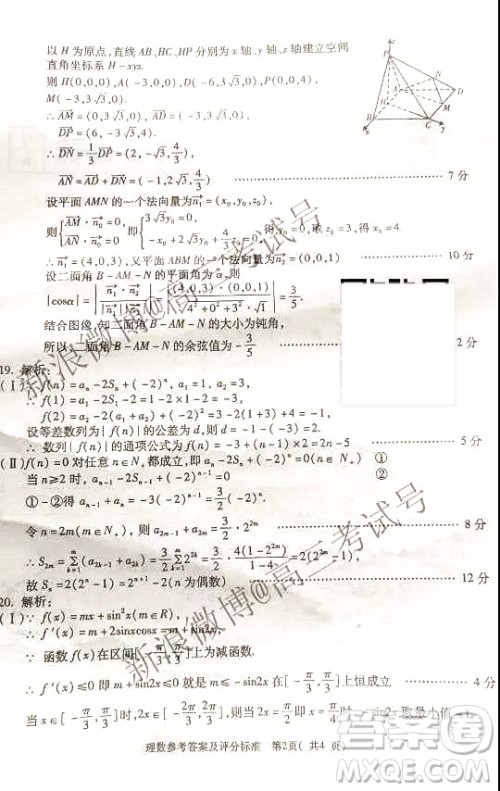 以 H 为原点,直线 AB、HC、HP 分别为 x 轴、y 轴、z 轴建立空间
直角坐标系 H-xyz.
则 H(0,0,0), A(-3,0,0) D(-6,3√3,0), P(0,0,4),
M(-3,3√3,0).
∴ AM=(0,3√3,0), AD=(-3,3√3,0),
DP=(6,-3√3,4).
∴ DN=1/3 DP=(2,-√3,4/3),
AN=AD+DN=(-1,2√3,4/3) 7 分
设平面 AMN 的一个法向量为 n₀=(x₀,y₀,z₀),
则 {AM·n₀=0, AN·n₀=0, 即 {3√3y₀=0
∴ n₁=(4,0,3),又平面 ABM 的一个法向量为 n₂=(0,0,1) 10 分
设二面角 B-AM-N 的平面角为 α,则
|cosα|=|n₁·n₂/|n₁|·|n₂||=|(4,0,3)·(0,0,1)/√(4²+0²+3²)·√1|=3/5.
结合图像,知二面角 B-AM-N 的大小为钝角,
所以二面角 B-AM-N 的余弦值为 -3/5 2 分
19. 解析:
(Ⅰ) f(n)=aₙ-2Sₙ+(-2)ⁿ, a₁=1, a₂=3,
∴ f(1)=a₁-2S₁-2=1-2×1-2=-3,
f(2)=a₂-2(a₁+a₂)+(-2)²=3-2×4+4=-1,
设等差数列为{f(n)}的公差为 d,则 d=-1-(-3)=2.
∴ 数列{f(n)}的通项公式为 f(n)=-3+(n-1)×2=2n-5 5 分
(Ⅱ) f(n)=0 对任意 n∈N₊ 都成立,即 aₙ-2Sₙ+(-2)ⁿ=0 ①
当 n≥2 时, aₙ₋₁-2Sₙ₋₁+(-2)ⁿ⁻¹=0 ②
①-②得 aₙ+aₙ₋₁=3/2·(-2)ⁿ
令 n=2m(m∈N₊), a₂ₘ₋₁+a₂ₘ=3/2·2²ᵐ 8 分
∴ S₂ₘ=Σ(a₂ₖ₋₁+a₂ₖ)=3/2 Σ2²ᵏ=3/2·4(1-2²ᵐ)/(1-4)=2(2²ᵐ-1),
故 Sₙ=2(2ⁿ-1)(n 为偶数) 12 分
20. 解析:
(Ⅰ) ∵ f(x)=mx+sin²x(m∈R),
∴ f′(x)=m+2sinxcosx=m+sin2x,
∵ 函数 f(x)在区间[-π/3,π/3]上为减函数.
∴ f′(x)≤0 即 m+sin2x≤0 在[-π/3,π/3]上恒成立 4 分
理数参考答案及评分标准 第2页(共4 页)
新浪微博@高三考试号
新浪微博@高三考试号